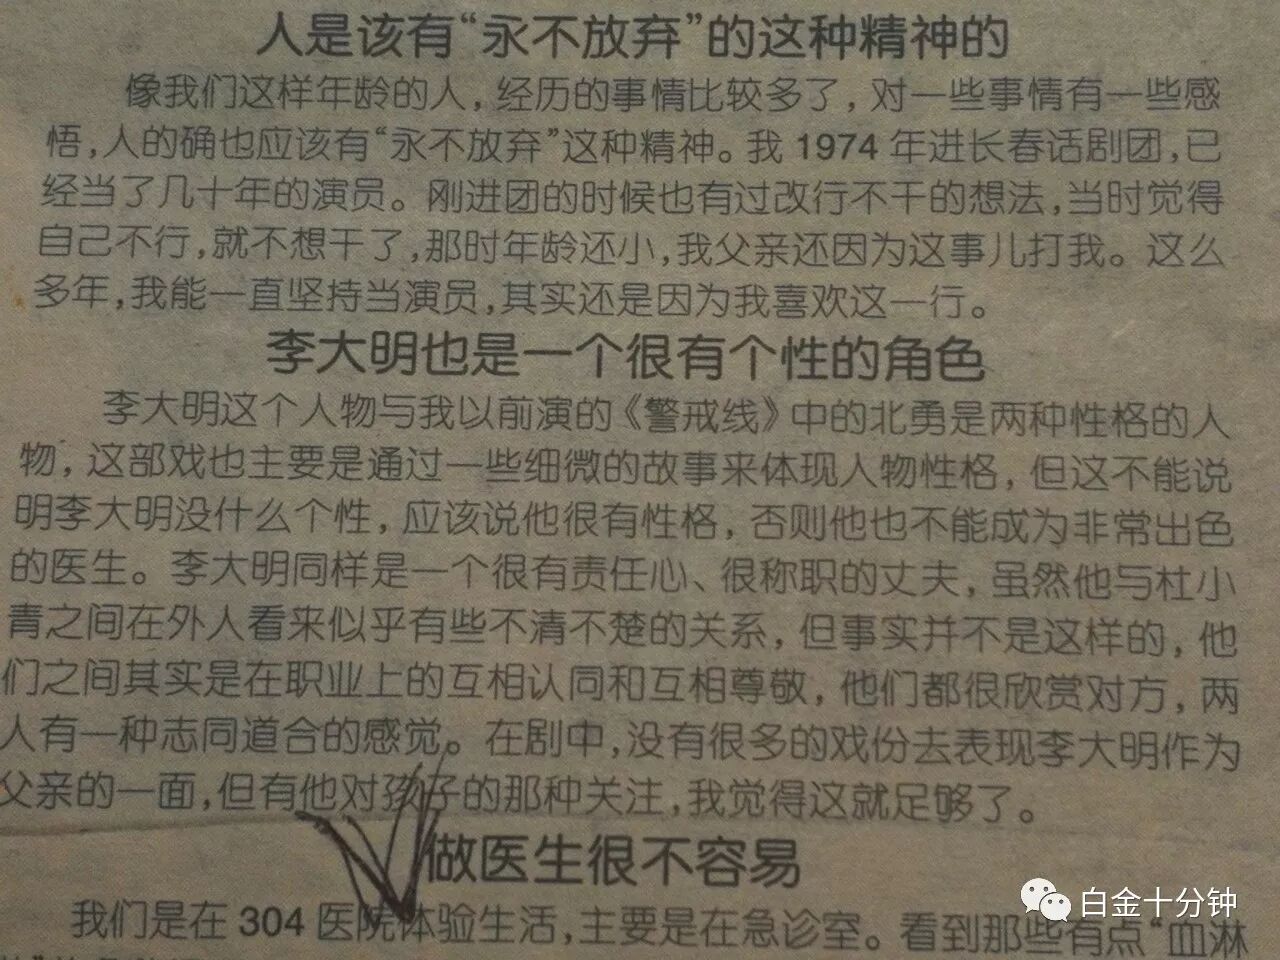 人是该有“永不放弃”的这种精神的
像我们这样年龄的人，经历的事情比较多了，对一些事情有一些感
悟，人的确也应该有“永不放弃”这种精神。我 1974 年进长春话剧团，已
经当了几十年的演员。刚进团的时候也有过改行不干的想法，当时觉得
自己不行，就不想干了，那时年龄还小，我父亲还因为这事儿打我。这么
多年，我能一直坚持当演员，其实还是因为我喜欢这一行。
李大明也是一个很有个性的角色
李大明这个人物与我以前演的《警戒线》中的北勇是两种性格的人
物，这部戏也主要是通过一些细微的故事来体现人物性格，但这不能说
明李大明没什么个性，应该说他很有性格，否则他也不能成为非常出色
的医生。李大明同样是一个很有责任心、很称职的丈夫，虽然他与杜小
青之间在外人看来似乎有些不清不楚的关系，但事实并不是这样的，他
们之间其实是在职业上的互相认同和互相尊敬，他们都很欣赏对方，两
人有一种志同道合的感觉。在剧中，没有很多的戏份去表现李大明作为
父亲的一面，但有他对孩子的那种关注，我觉得这就足够了。
做医生很不容易
我们是在 304 医院体验生活，主要是在急诊室。看到那些有点“血淋
白金十分钟